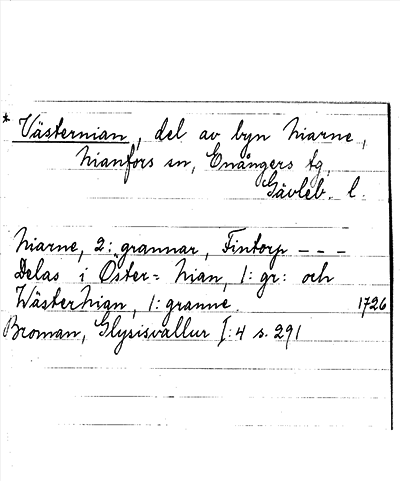 * Västernian, del av byn Niarne,
Nianfors sn, Enångers tg,
Gävleb. l.
Niarne, 2: grannar, Fintorp ---
Delas i Öster= Nian, 1: gr: och
WästerNian, 1: granne. 1726
Broman, Glysisvallur I:4 s. 291